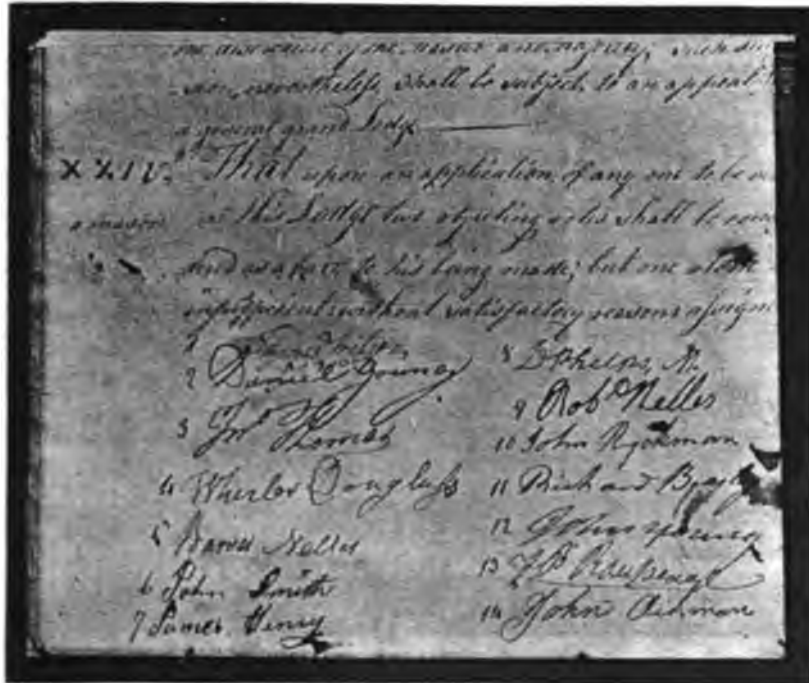 sion, nevertheless, shall be subject to an appeal
a general grand Lodge
XXIV. That upon an application of any one to be
a mason in this Lodge two objecting votes shall be
and as a bar to his being made; but one alone
insufficient without satisfactory reasons assign
1
2 Daniel Young
3 Jno Thomas
4 Wheeler Douglass
5 Warner Nelles
6 John Smith
7 James Henry
8 D Phelps, M.
9 Robt Nelles
10 John Ryckman
11 Richard Beasly
12 John Young
13 J B Rousseaux
14 John Aikman